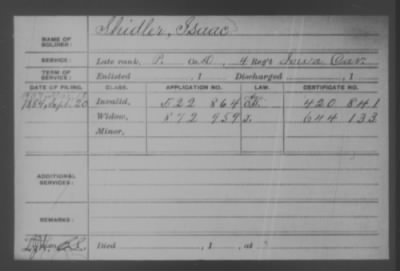 NAME OF SOLDIER: Shidler, Isaac
SERVICE: Late rank, P. Co. D, 4 Reg't Iowa Cav.
TERM OF SERVICE: Enlisted , 1 Discharged , 1
DATE OF FILING. CLASS. APPLICATION NO. LAW. CERTIFICATE NO.
1884, Sept. 20 Invalid, 522 864 420 841
Widow, 872 959 644 133
Minor,
ADDITIONAL SERVICES:
REMARKS:
Died , 1 , at